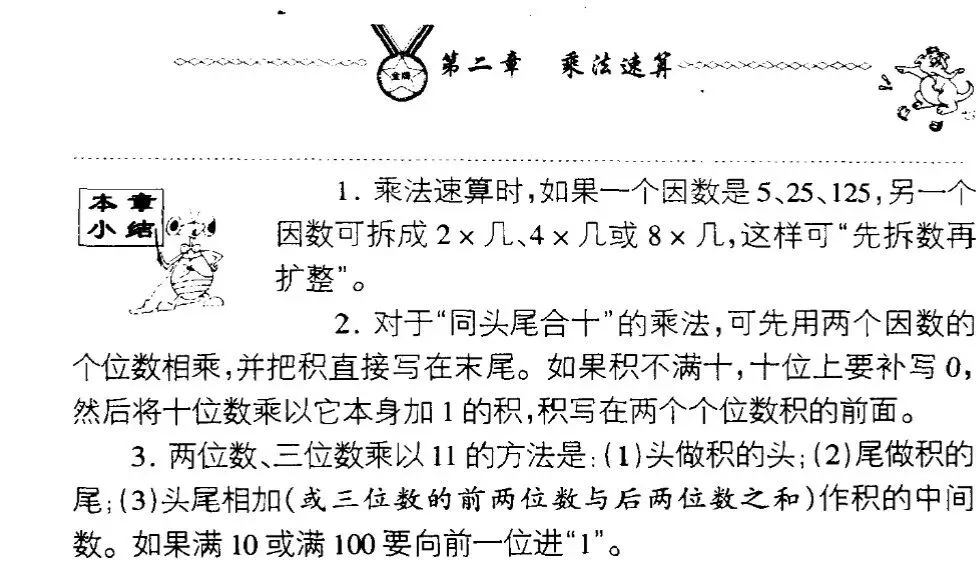 金牌
第二章 乘法速算
本章
小结
1. 乘法速算时,如果一个因数是5、25、125,另一个
因数可拆成2×几、4×几或8×几,这样可“先拆数再
扩整”。
2. 对于“同头尾合十”的乘法,可先用两个因数的
个位数相乘,并把积直接写在末尾。如果积不满十,十位上要补写0,
然后将十位数乘以它本身加1的积,积写在两个个位数积的前面。
3. 两位数、三位数乘以11的方法是:(1)头做积的头;(2)尾做积的
尾;(3)头尾相加(或三位数的前两位数与后两位数之和)作积的中间
数。如果满10或满100要向前一位进“1”。